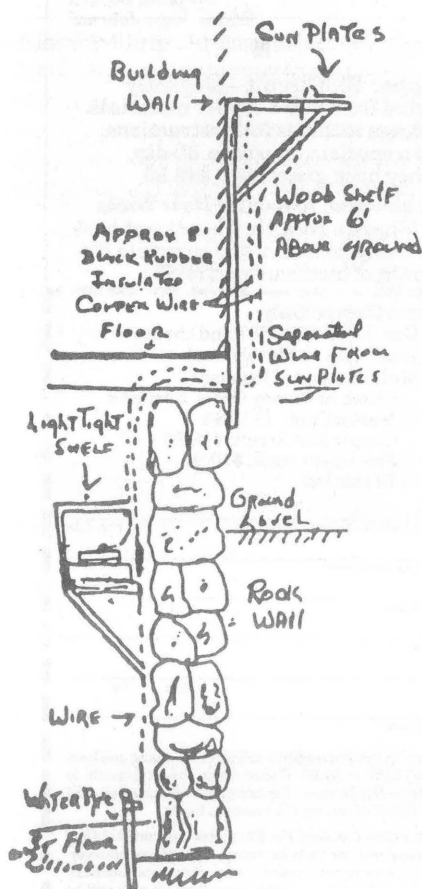 SUN PLATES
Building
WALL
Wood Shelf
Approx 6'
Above ground
Approx 8'
Black Rubber
Insulated
Copper Wire
Floor
Separated
Wire From
SUN PLATES
Light Tight
Shelf
Ground
Level
Rock
WALL
WIRE
WATER PIPE
Floor